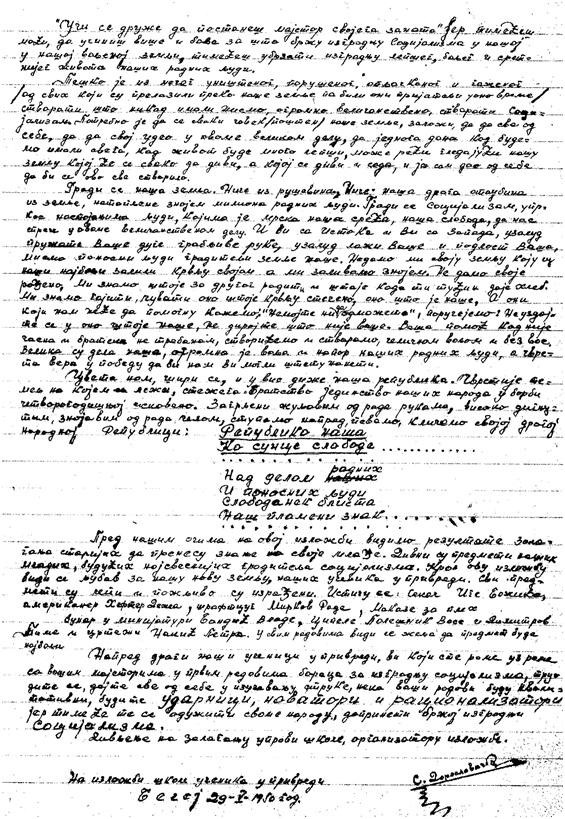 "Учи се друже да постанеш мајстор својега заната" Јер тиме ћеш
моћи, да учиниш више и боље за што бржу изградњу Социјализма у нашој
у нашој вољеној земљи, тиме ћеш убрзати изградњу лепшег, бољег и срет-
нијег живота наших радних људи.
Тешко је из нечег уништеног, порушеног, опљачканог и гаженог
од свих који су прелазили преко наше земље па били они пријатељи уоно време
стварати што никад имали нисмо, огромно, величанствено, стварати Соци-
јализам. Потребно је да се сваки човек/поштен/ наше земље, заложи, да да све од
себе, да да свој удео у овоме великом делу, да једнога дана кад буде-
мо имали света, кад живот буде много лепши, може рећи гледајући нашу
земљу којој ће се свако да диви, а којој се диви и сада, и ја сам дао од себе
да би се ово све створило.
Гради се наша земља. Ниче из рушевина, Ниче наша драга отаџбина
из земље, натопљене знојем милиона радних људи. Гради се Социјализам, упр-
кос настојањима људи, којима је мрска наша срећа, наша слобода, да нас
спрече у овоме величанственом делу. И ви са Истока и Ви са Запада, узалуд
пружате Ваше дуге грабљиве руке, узалуд лажи Ваше и подлост Ваша.
Ми смо поносни људи градитељи земље наше. Недамо ми своју земљу коју су
наши најбољи залили крвљу својом а ми заливамо знојем. Не дамо своје
рођено, Ми знамо шта је за другог радити и шта је када ти туђин даје хлеб.
Ми знамо гајити, чувати оно што је крвљу стечено, оно што је наше, И они
који нам желе да помогну кажемо, "Немојте ни одможете", поручујемо: Не уздај-
те се у оно што је наше, Не дирајте што није ваше. Ваша помоћ кад није
часна и братска не требанам, створићемо и стварамо, челичном вољом и без вас.
Велика су дела наша, огромна је воља и напор наших радних људи, а чврс-
та вера у победу да би нам ви могли штету нанети.
Цвета нам, шири се, и у вис диже наша република. Чврсти је те-
мељ на којем она лежи, стежега братство јединство наших народа у борби
четворогодишњој сковано. Загрљени жуљавим од рада рукама, високо дигну-
тим, знојавим од рада челом, ступамо напред, певамо, кличемо својој драгој
Народној Републици: Републико наша
Ко сунце слободе . . . . . . . . . . . . .
Над делом радних
И поносних људи
Слобода нек блиста
Наш пламени знак. . . . . . . . . .
Пред нашим очима на овој изложби видимо резултате зала-
гања старијих да пренесу знање на своје млађе. Дивни су предмети наших
младих, будућих најсвеснијих градитеља социјализма. Кроз ову изложбу
види се љубав за нашу нову земљу, наших ученика у привреди. Сви пред-
мети су лепи и пожљиво су израђени. Истичу се: Сенач Иге Божића,
американер Хефнер Денеа, шрафтцуг Мирков Раде, Маказе за плех
бунар у минијатури Бонџић Владе, Ципеле Полешник Васе и Димитров
Тиме и цртежи Чанић Петра. У свим радовима види се жеља да предмет буде
најбољи
Напред драги наши ученици у привреди, ви који сте раме уз раме
са вашим мајсторима у првим редовима бораца за изградњу социјализма, тру-
дите се, дајте све од себе у изучавању струке, нека ваши радови буду квали-
тативни, будите ударници, новатори и рационализатори
јер тиме ће те се одужити своме народу, допринети бржој изградњи
Социјализма.
Дивљење на залагању управи школе, организатору изложбе.
На изложби школе ученика у привреди
Бегеј 29-V-1950 год.